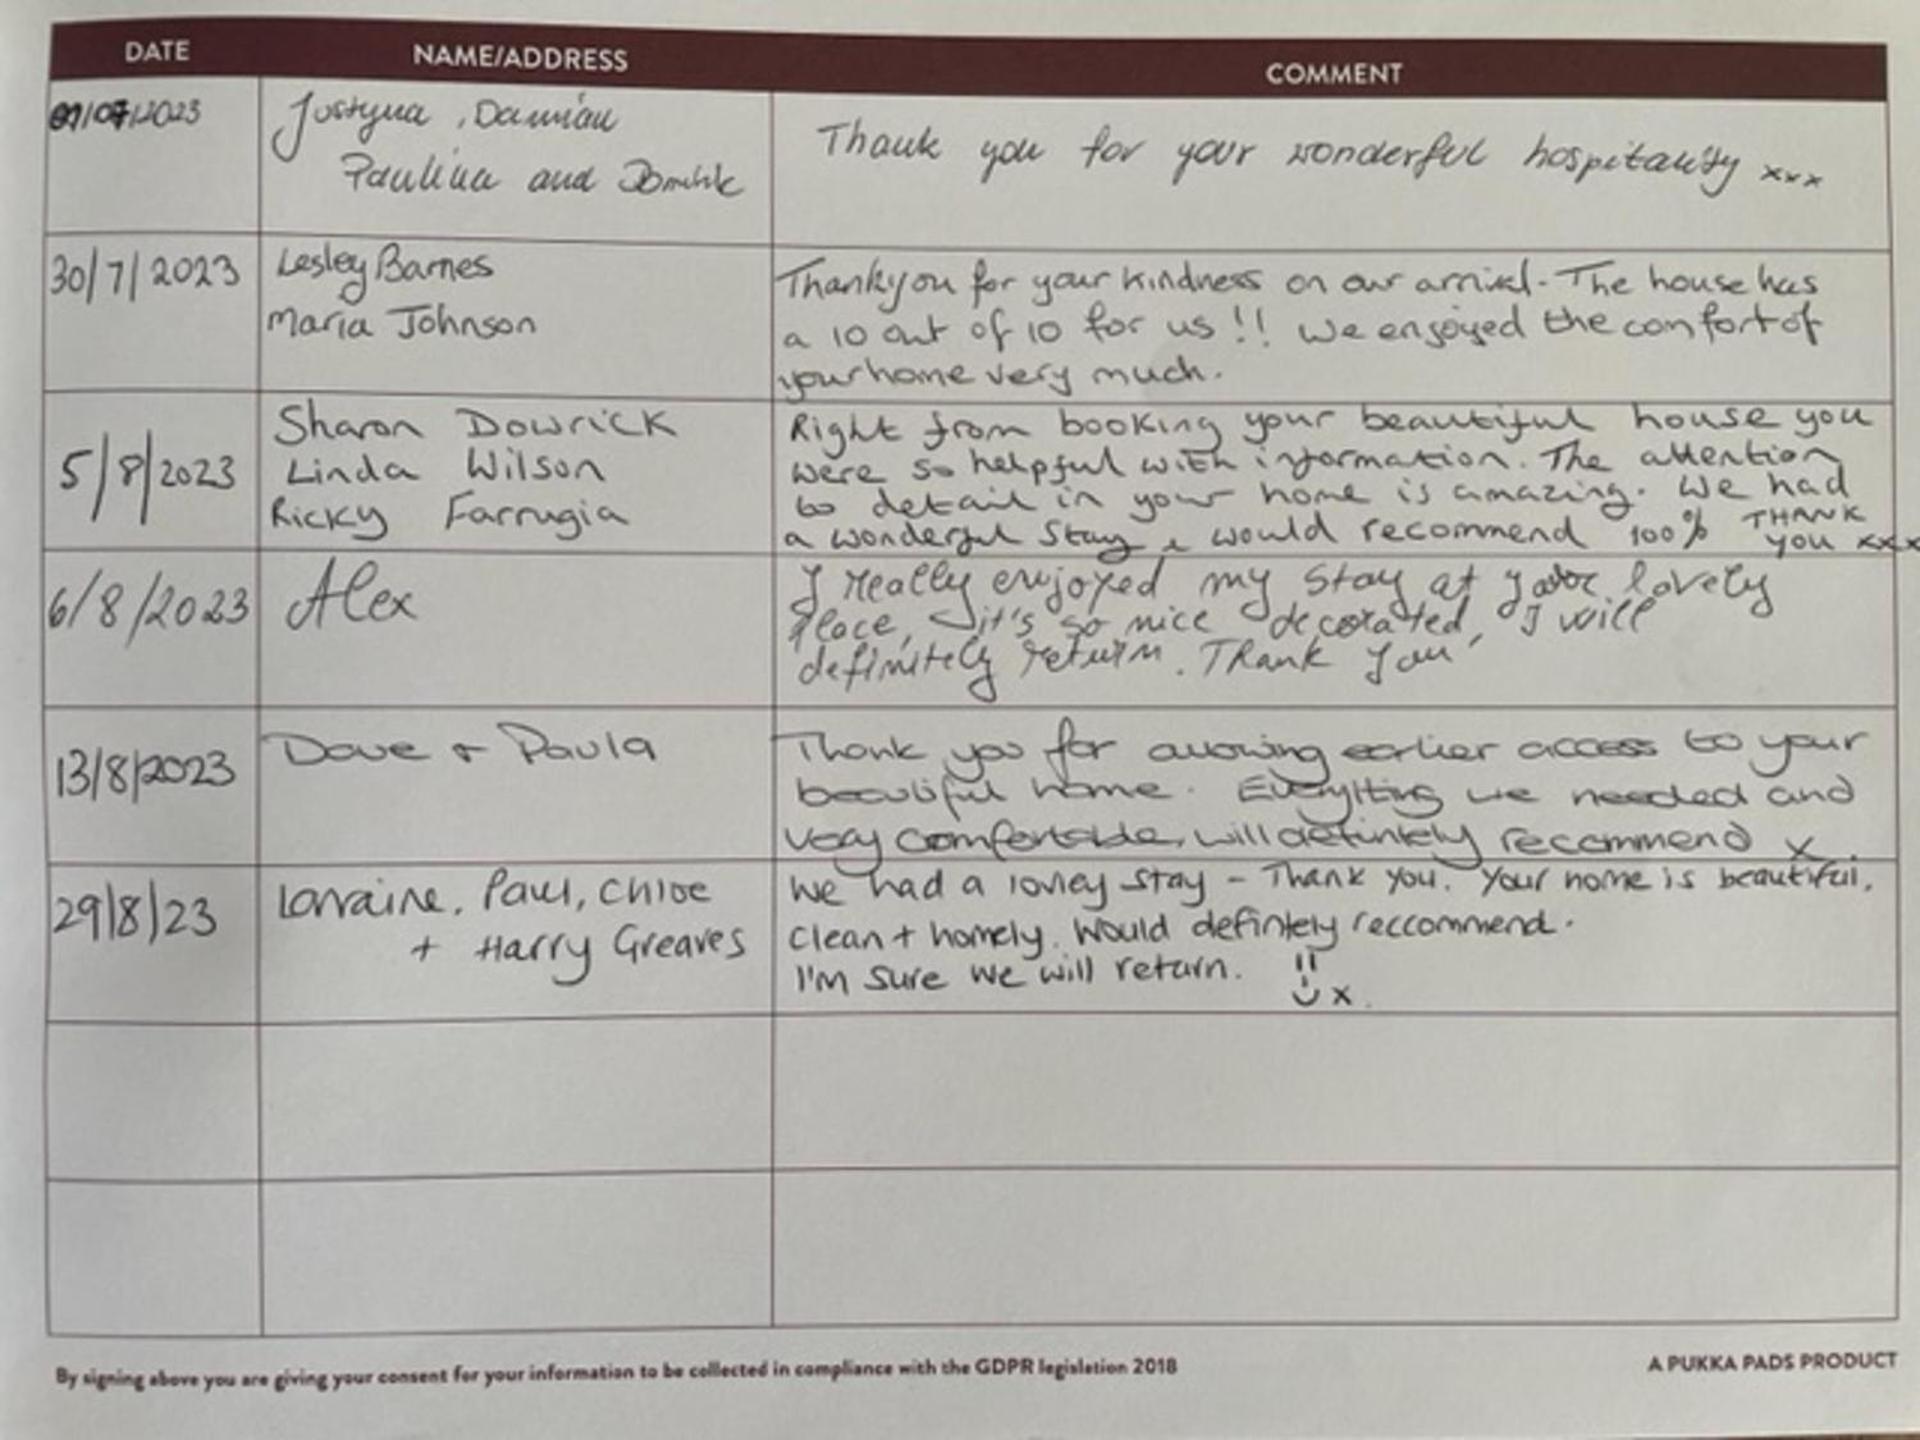 DATE NAME/ADDRESS COMMENT
/07/2023 Justyna, Damian
Paulina and Dominik
Thank you for your wonderful hospitality xxx
30/7/2023 Lesley Barnes
Maria Johnson
Thankyou for your kindness on our arrival. The house has
a 10 out of 10 for us!! We enjoyed the comfort of
your home very much.
5/8/2023 Sharon Dowrick
Linda Wilson
Ricky Farrugia
Right from booking your beautiful house you
were so helpful with information. The attention
to detail in your home is amazing. We had
a wonderful stay & would recommend 100% THANK
YOU xxx
6/8/2023 Alex
I really enjoyed my stay at your lovely
place, it's so nice decorated, I will
definitely return. Thank you
13/8/2023 Dave + Paula
Thank you for allowing earlier access to your
beautiful home. Everything we needed and
very comfortable, will definitely recommend x
29/8/23 Lorraine, Paul, Chloe
+ Harry Greaves
We had a lovley stay - Thank you. Your home is beautiful,
clean + homely. Would defintely reccommend.
I'm sure we will return. x
By signing above you are giving your consent for your information to be collected in compliance with the GDPR legislation 2018
A PUKKA PADS PRODUCT